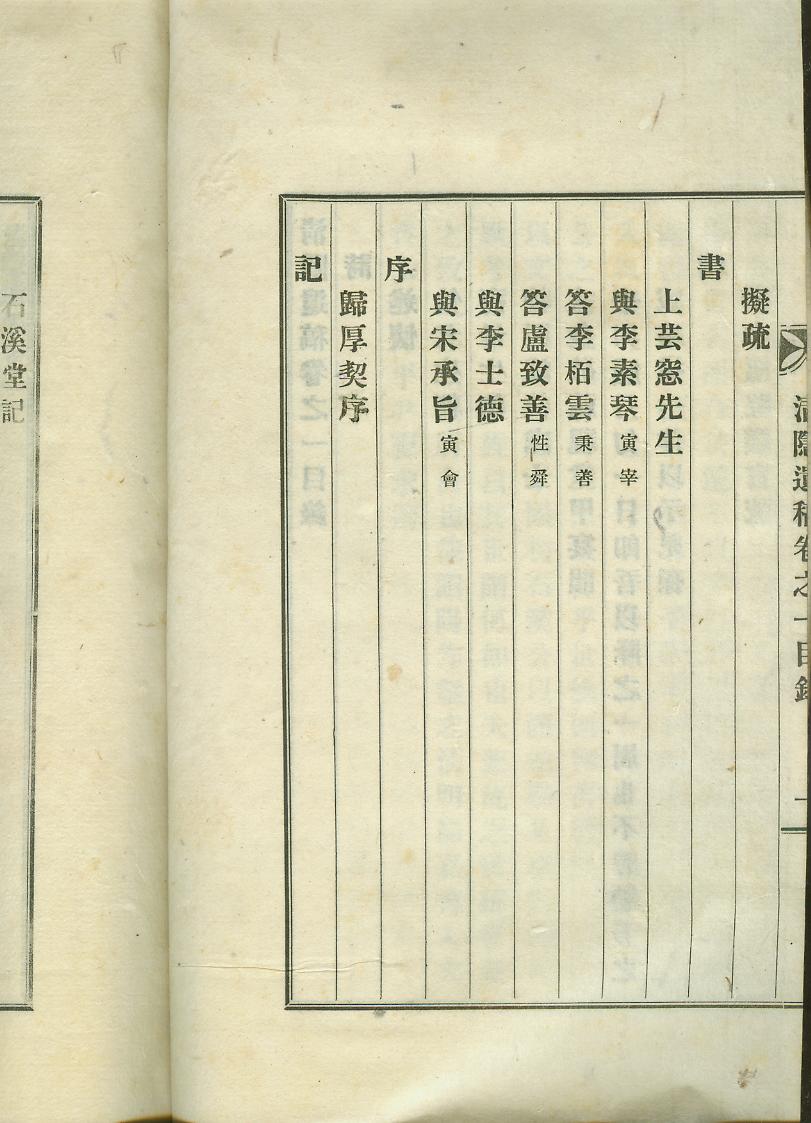 淸隱遺稿卷之一目錄 一
擬疏
書
上芸窓先生
與李素琴寅宰
答李栢雲秉善
答盧致善性舜
與李士德
與宋承旨寅會
序
歸厚契序
記
石溪堂記